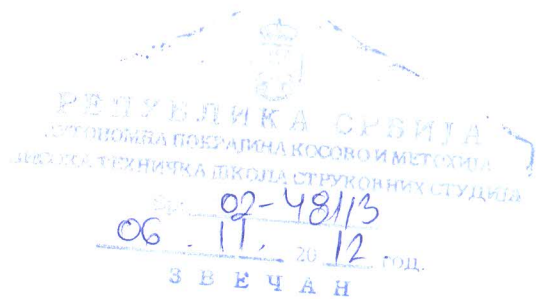 РЕПУБЛИКА СРБИЈА
АУТОНОМНА ПОКРАЈИНА КОСОВО И МЕТОХИЈА
ВИСОКА ТЕХНИЧКА ШКОЛА СТРУКОВНИХ СТУДИЈА
Бр. 02-481/3
06. 11. 2012 год.
ЗВЕЧАН